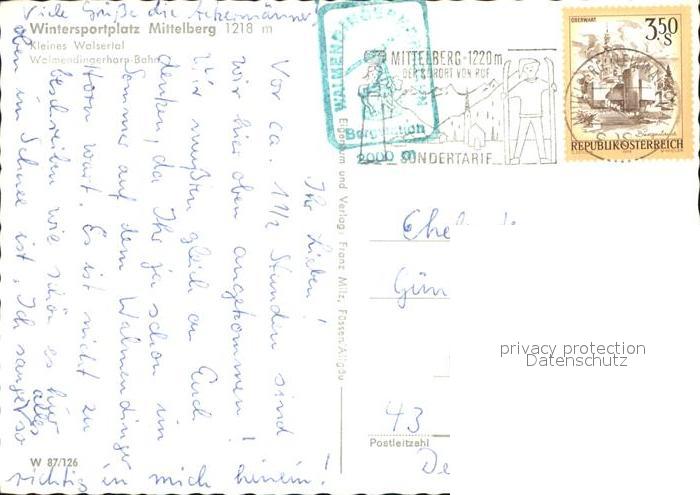 Viele Grüße die Ackermänner
Wintersportplatz Mittelberg 1218 m
Kleines Walsertal
Walmendingerhorn-Bahn
Ihr Lieben!
Vor ca. 1 1/2 Stunden sind
wir hier oben angekommen!
Wir mußten gleich an Euch
denken, da Ihr ja schon im
Sommer auf dem Walmendinger
Horn wart. Es ist nicht zu
beschreiben wie schön es hier
oben im Schnee ist. Ich sauge alles so
richtig in mich hinein!
W 87/126
Eigentum und Verlag: Franz Milz, Füssen/Allgäu
WALMENDINGERHORN
Bergstation
2000 m
MITTELBERG-1220m
DER KURORT VON RUF
SONDERTARIF
OBERWART
3,50 S
REPUBLIK ÖSTERREICH
Ehe
Gün
privacy protection
Datenschutz
43
Postleitzahl
De